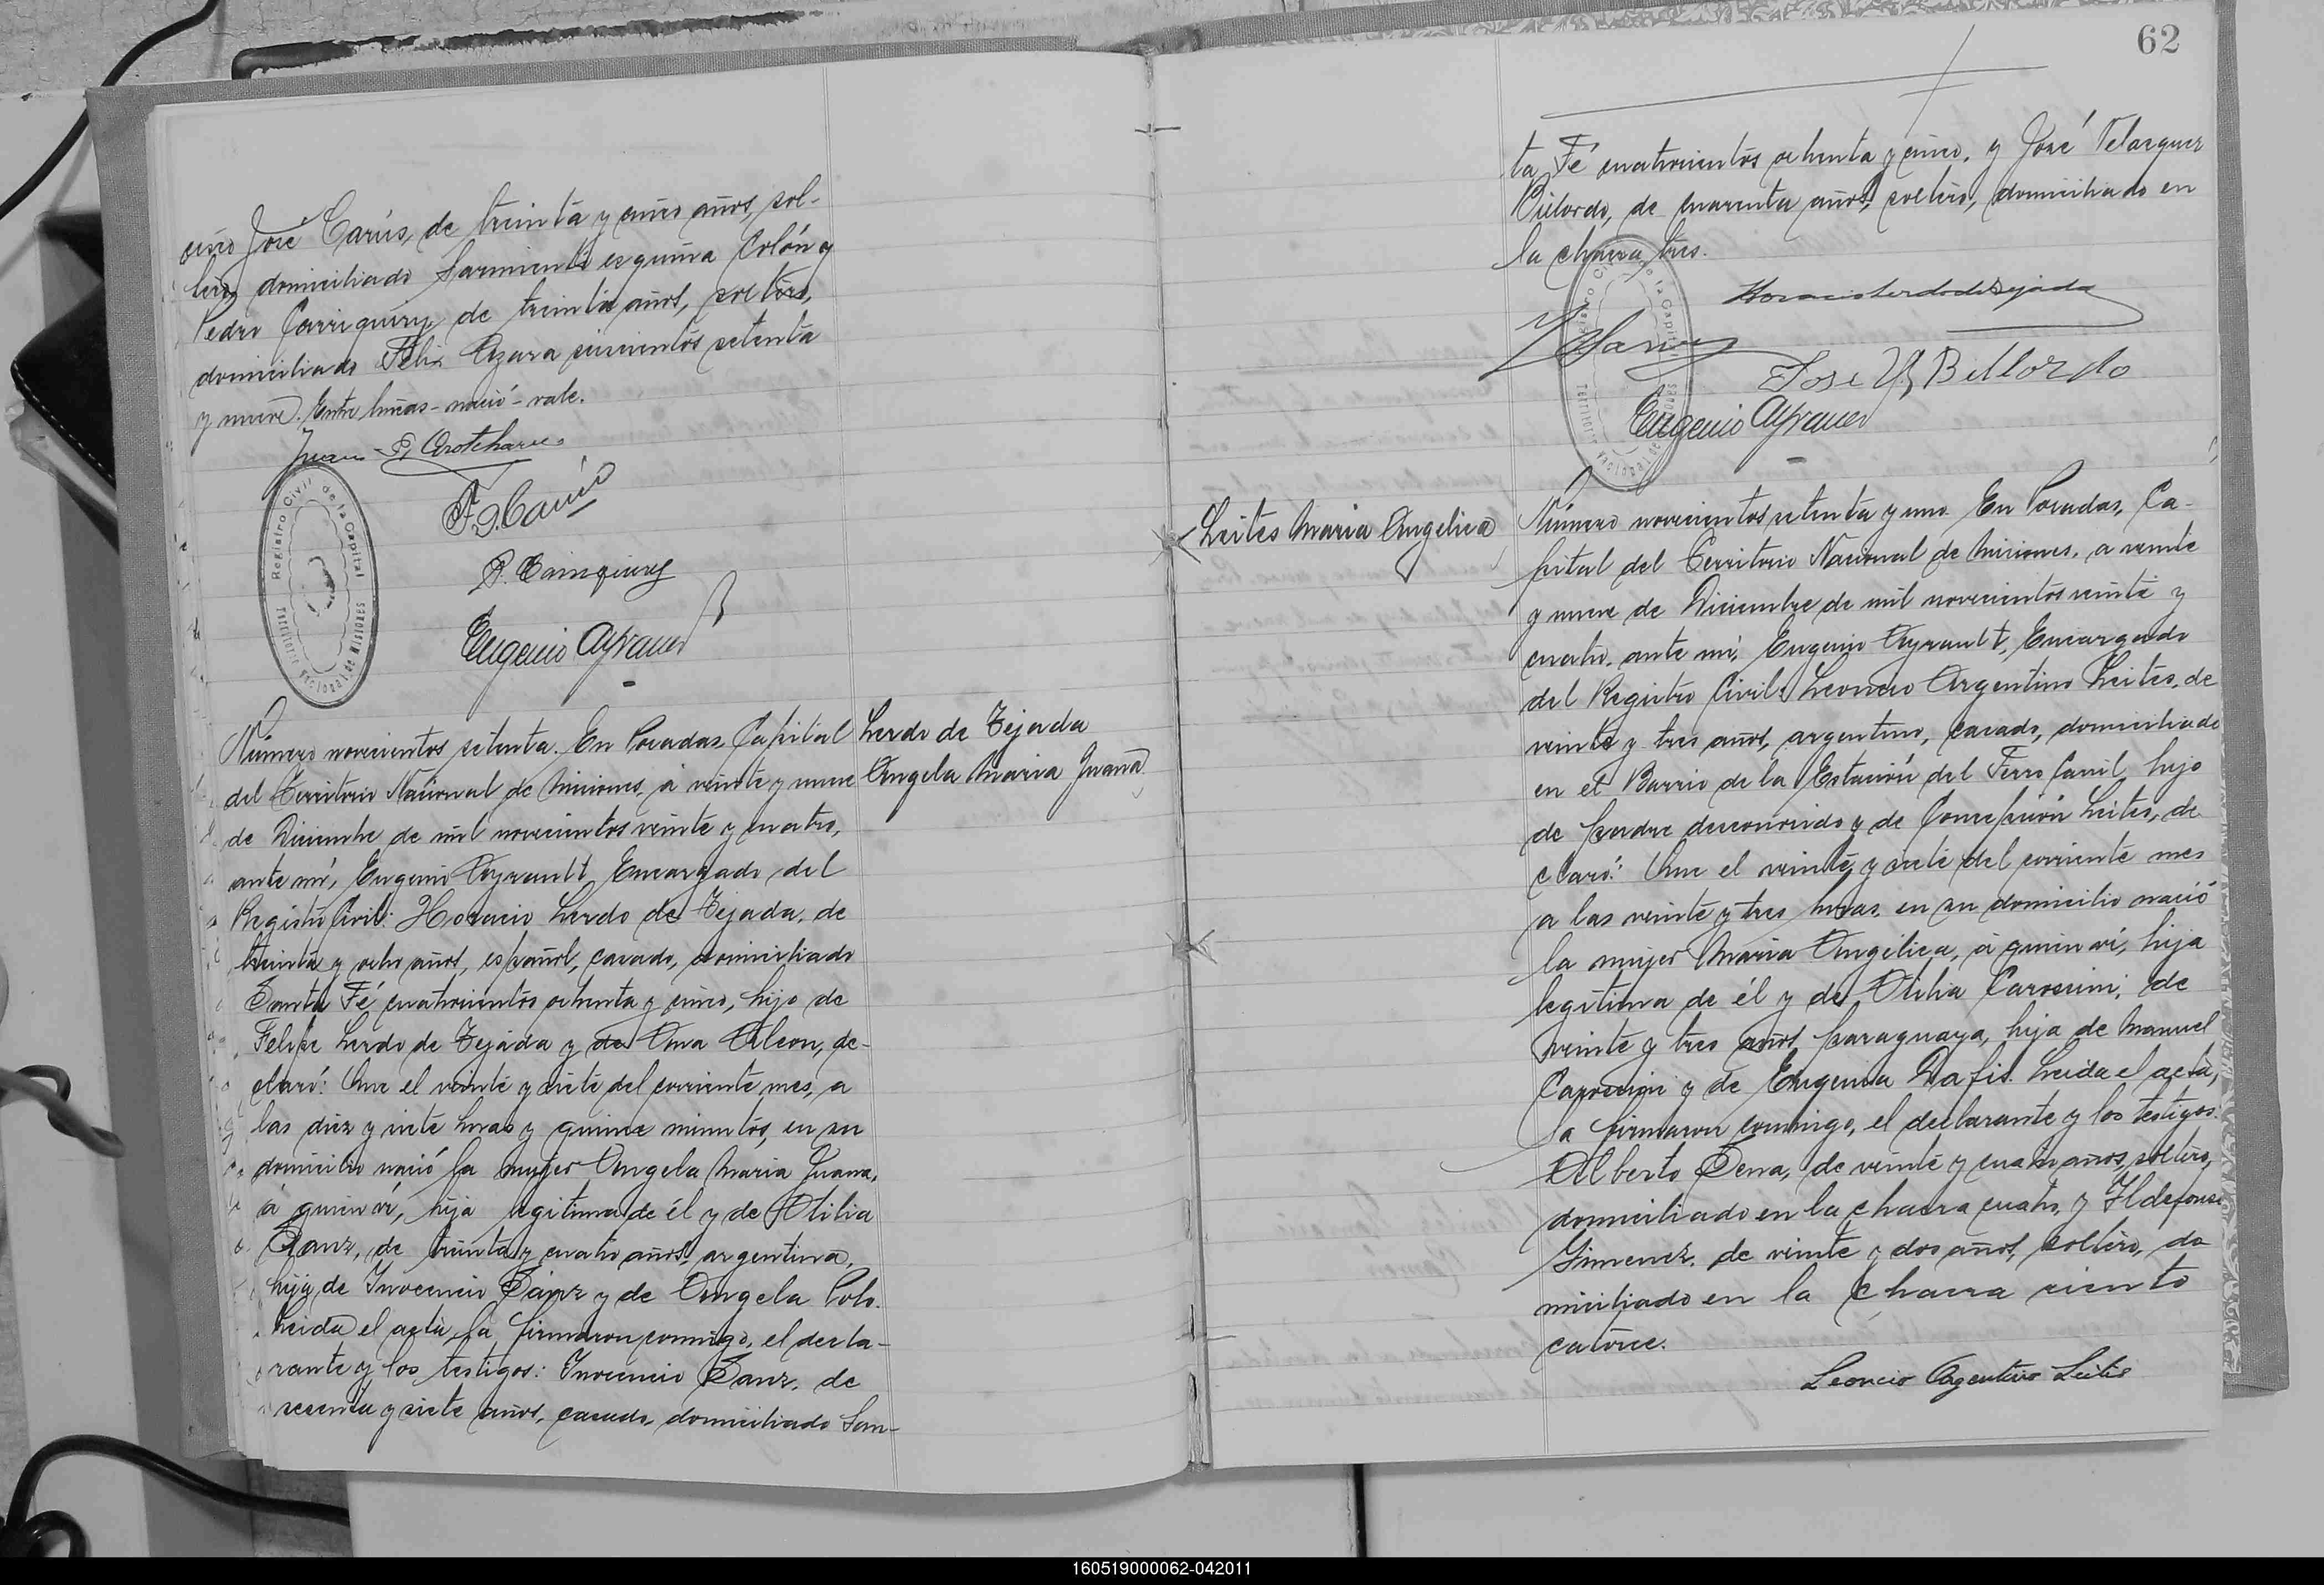 cino José Carús, de treinta y cinco años, sol-
tero, domiciliado Sarmiento esquina Colón y
Pedro Carriquiry, de treinta años, soltero,
domiciliado Félix Azara seiscientos setenta
y nueve. Entre líneas - nació - vale.
Juan P.
P. Carriquiry
Eugenio Ayrault
Registro Civil de la Capital
Territorio Nacional de Misiones
Número novecientos setenta. En Posadas, Capital
del Territorio Nacional de Misiones, á veinte y nueve
de Diciembre de mil novecientos veinte y cuatro,
ante mí, Eugenio Ayrault, Encargado del
Registro Civil: Horacio Lerdo de Tejada, de
treinta y ocho años, español, casado, domiciliado
Santa Fé cuatrocientos ochenta y cinco, hijo de
Felipe Lerdo de Tejada y de Ana Aleon, de-
claró: Que el veinte y siete del corriente mes, a
las diez y siete horas y quince minutos, en su
domicilio nació la mujer Angela María Juana,
á quien ví, hija legítima de él y de Otilia
Sanz, de treinta y cuatro años, argentina,
hija de Inocencio Sanz y de Angela Polo.
Leida el acta, la firmaron conmigo, el decla-
rante y los testigos: Inocencio Sanz, de
sesenta y siete años, casado, domiciliado San-
Lerdo de Tejada
Angela María Juana
62
ta Fé cuatrocientos ochenta y cinco, y José Velazquez
Billordo, de cuarenta años, soltero, domiciliado en
la chacra tres.
Horacio Lerdo de Tejada
Y Sanz
José V. Billordo
Eugenio Ayrault
Registro Civil de la Capital
Territorio Nacional de Misiones
Leites María Angélica
Número novecientos setenta y uno. En Posadas, Ca-
pital del Territorio Nacional de Misiones, a veinte
y nueve de Diciembre de mil novecientos veinte y
cuatro, ante mí, Eugenio Ayrault, Encargado
del Registro Civil: Leoncio Argentino Leites, de
veinte y tres años, argentino, casado, domiciliado
en el Barrio de la Estación del Ferro Carril, hijo
de padre desconocido y de Concepción Leites, de
claró: Que el veinte y siete del corriente mes
a las veinte y tres horas, en su domicilio nació
la mujer María Angélica, á quien ví, hija
legítima de él y de Otilia Carossini, de
veinte y tres años, paraguaya, hija de Manuel
Carossini y de Eugenia Dafis. Leida el acta,
la firmaron conmigo, el declarante y los testigos:
Alberto Sena, de veinte y cuatro años, soltero,
domiciliado en la chacra cuatro, y Ildefonso
Gimenez, de veinte y dos años, soltero, do
miciliado en la chacra ciento
catorce.
Leoncio Argentino Leites
160519000062-042011